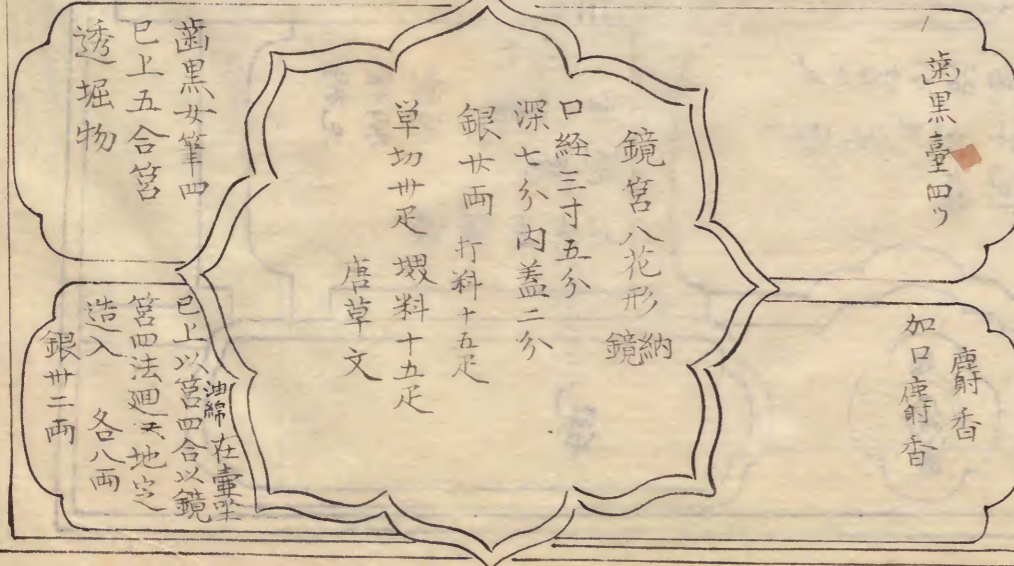 歯黒臺四ツ
麝香
加口麝香
鏡筥八花形 納鏡
口経三寸五分
深七分内蓋二分
銀廿両 打料十五疋
単切卅疋 堀料十五疋
唐草文
歯黒女筆四
已上五合筥
透堀物
油綿 在壷
已上以筥四合以鏡
筥四法廻 天地定
造入 各八両
銀卅二両